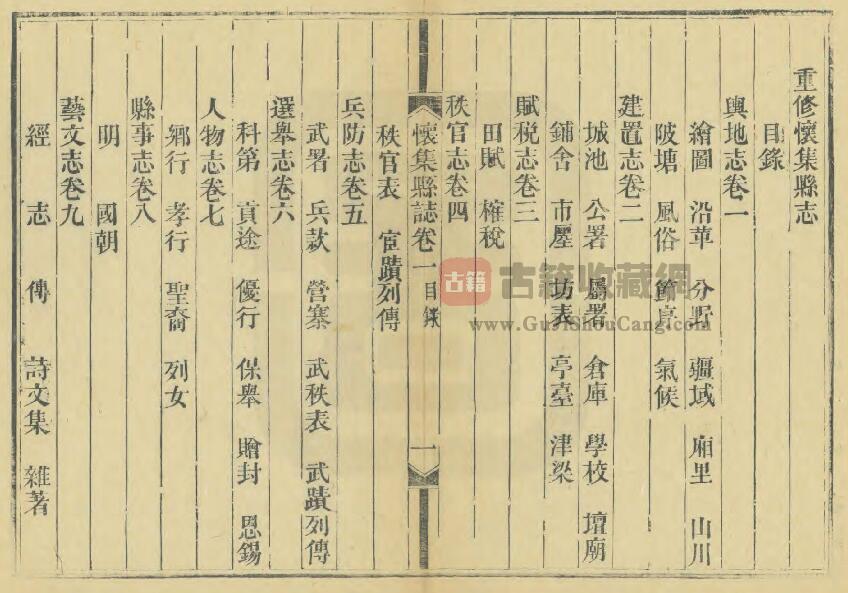 重修懷集縣志
目錄
輿地志卷一
繪圖 沿革 分野 疆域 廂里 山川
陂塘 風俗 節序 氣候
建置志卷二
城池 公署 屬署 倉庫 學校 壇廟
鋪舍 市廛 坊表 亭臺 津梁
賦稅志卷三
田賦 榷稅
秩官志卷四
懷集縣誌 卷一 目錄 一
秩官表 宦蹟列傳
兵防志卷五
武署 兵款 營寨 武秩表 武蹟列傳
選舉志卷六
科第 貢途 優行 保舉 贈封 恩錫
人物志卷七
鄉行 孝行 聖裔 列女
縣事志卷八
明 國朝
藝文志卷九
經 志 傳 詩文集 雜著
古籍 古籍收藏網
www.GuJiShouCang.com